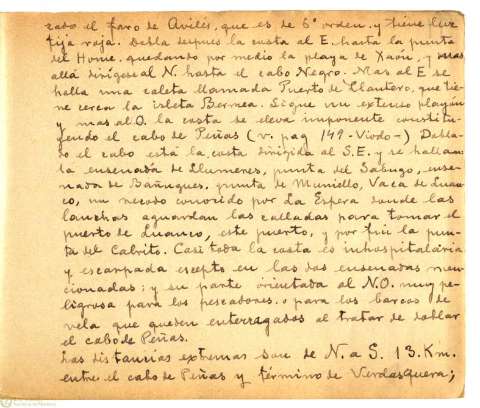 cado el faro de Avilés, que es de 6º orden y tiene luz
fija roja. Dobla despues la costa al E. hasta la punta
del Home, quedando por medio la playa de Xaón, y mas
allá dirigese al N. hasta el cabo Negro. Mas al E. se
halla una caleta llamada Puerto de Llantero, que tie-
ne cerca la isleta Bermea. Sigue un extenso playón
y mas al O. la costa se eleva imponente constitu-
yendo el cabo de Peñas (v. pag 149 - Viodo -) Dobla-
do el cabo está la costa dirigida al S.E. y se hallan
la ensenada de Llumeres, punta del Sabugo, ense-
nada de Bañugues, punta de Moniello, Vaca de Luan-
co, un recodo conocido por La Espera donde las
lanchas aguardan las calladas para tomar el
puerto de Luanco, este puerto, y por fin la pun-
ta del Cabrito. Casi toda la costa es inhospitalaria
y escarpada escepto en las dos ensenadas men-
cionadas; y su parte orientada al N.O. muy pe-
ligrosa para los pescadores o para los barcos de
vela que queden enterragados al tratar de doblar
el cabo de Peñas.
Las distancias extremas son: de N. a S. 13. Km.
entre el cabo de Peñas y término de Verdasquera;